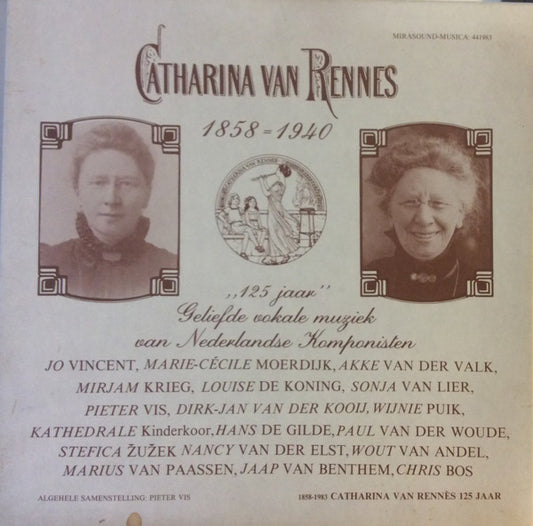 MIRASOUND-MUSICA: 441983
CATHARINA VAN RENNES
1858=1940
CATHARINA VAN RENNES
„125 jaar"
Geliefde vokale muziek
van Nederlandse Komponisten
JO VINCENT, MARIE-CÉCILE MOERDIJK, AKKE VAN DER VALK,
MIRJAM KRIEG, LOUISE DE KONING, SONJA VAN LIER,
PIETER VIS, DIRK-JAN VAN DER KOOIJ, WIJNIE PUIK,
KATHEDRALE Kinderkoor, HANS DE GILDE, PAUL VAN DER WOUDE,
STEFICA ŽUŽEK NANCY VAN DER ELST, WOUT VAN ANDEL,
MARIUS VAN PAASSEN, JAAP VAN BENTHEM, CHRIS BOS
ALGEHELE SAMENSTELLING: PIETER VIS
1858-1983 CATHARINA VAN RENNËS 125 JAAR